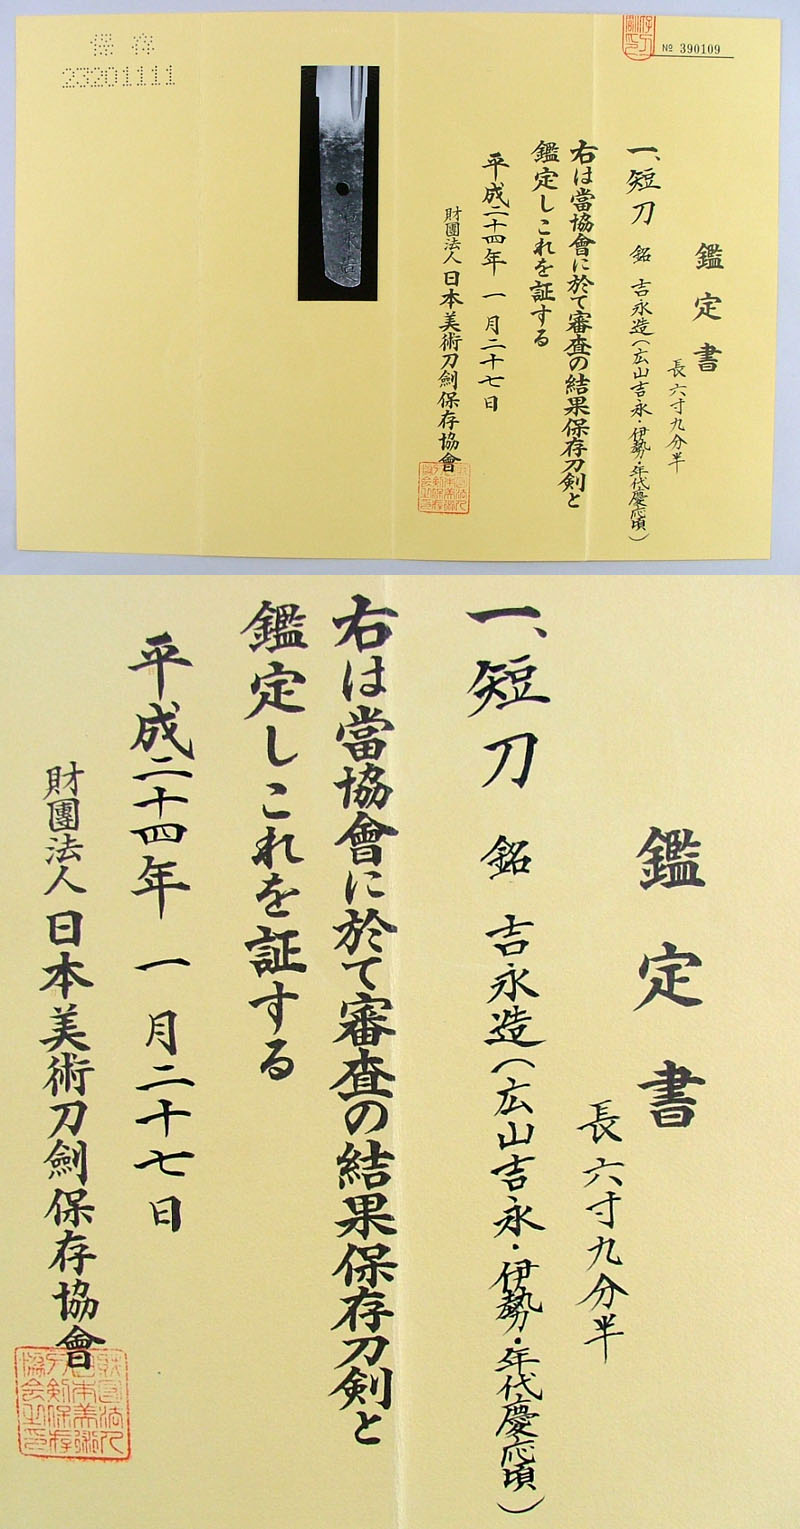 保存
23201111
№ 390109
鑑定書
長六寸九分半
一、短刀 銘 吉永造(広山吉永・伊勢・年代慶応頃)
右は當協會に於て審査の結果保存刀剣と
鑑定しこれを証する
平成二十四年 一月二十七日
財團法人 日本美術刀劍保存協會
鑑定書
長六寸九分半
一、短刀 銘 吉永造(広山吉永・伊勢・年代慶応頃)
右は當協會に於て審査の結果保存刀剣と
鑑定しこれを証する
平成二十四年 一月二十七日
財團法人 日本美術刀劍保存協會